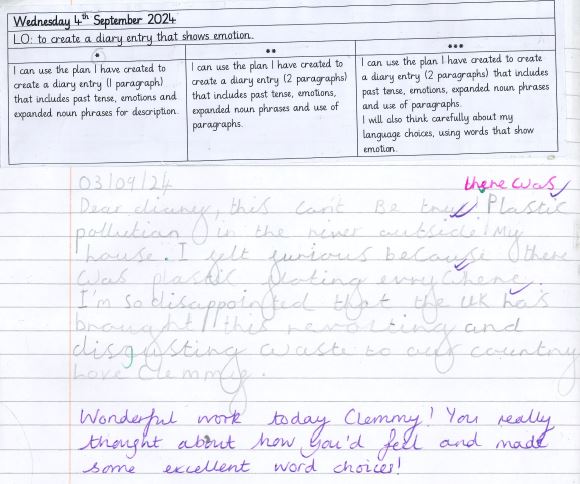 Wednesday 4th September 2024
LO: to create a diary entry that shows emotion.
*
I can use the plan I have created to
create a diary entry (1 paragraph)
that includes past tense, emotions and
expanded noun phrases for description.
**
I can use the plan I have created to
create a diary entry (2 paragraphs)
that includes past tense, emotions,
expanded noun phrases and use of
paragraphs.
***
I can use the plan I have created to create
a diary entry (2 paragraphs) that includes
past tense, emotions, expanded noun phrases
and use of paragraphs.
I will also think carefully about my
language choices, using words that show
emotion.
03/09/24
there was
Dear diarey, this can't Be true Plastic
pollution in the river outside My
house. I felt furious because there
was plastic floting evrywhere.
I'm so disappointed that the UK has
brought this revolting and
disgusting waste to our country
Love Clemmy.
Wonderful work today Clemmy! You really
thought about how you'd feel and made
some excellent word choices!